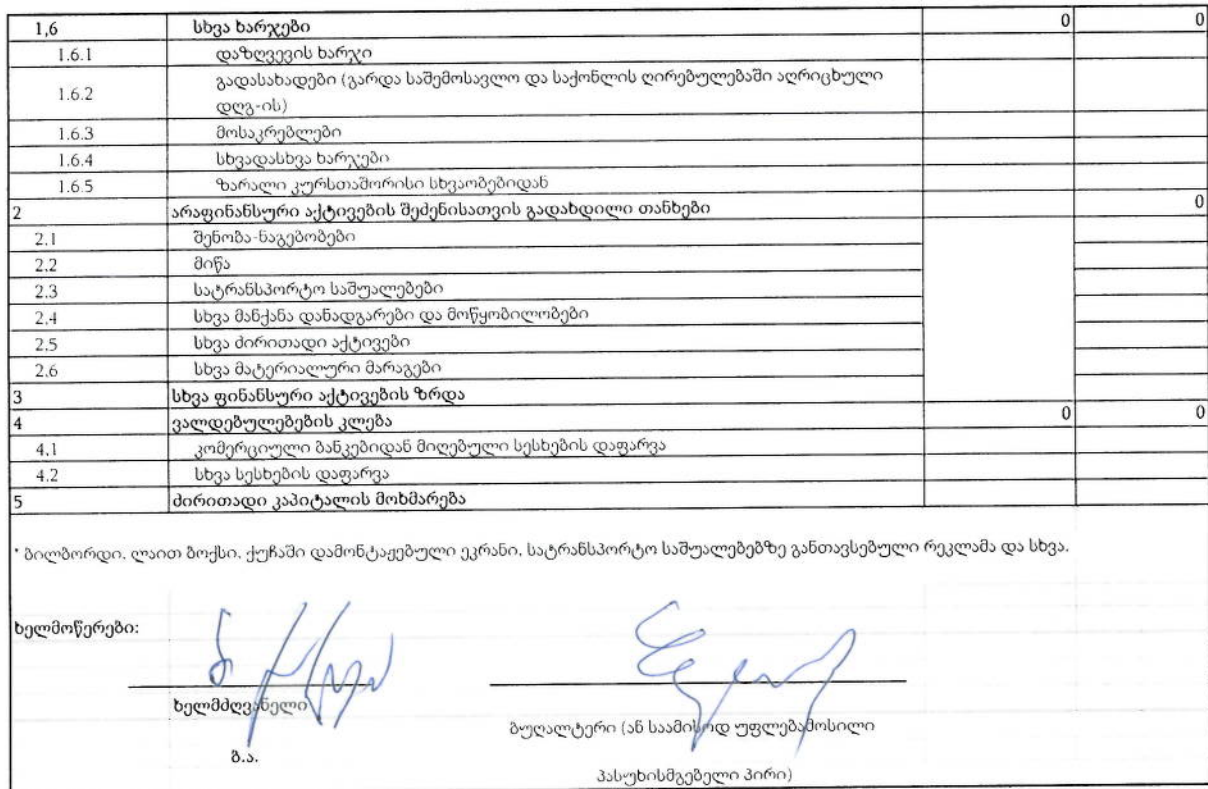 1,6 სხვა ხარჯები 0 0
1.6.1 დაზღვევის ხარჯი
1.6.2 გადასახადები (გარდა საშემოსავლო და საქონლის ღირებულებაში აღრიცხული
დღგ-ის)
1.6.3 მოსაკრებლები
1.6.4 სხვადასხვა ხარჯები
1.6.5 ზარალი კურსთაშორისი სხვაობებიდან
2 არაფინანსური აქტივების შეძენისათვის გადახდილი თანხები 0
2.1 შენობა-ნაგებობები
2.2 მიწა
2.3 სატრანსპორტო საშუალებები
2.4 სხვა მანქანა დანადგარები და მოწყობილობები
2.5 სხვა ძირითადი აქტივები
2.6 სხვა მატერიალური მარაგები
3 სხვა ფინანსური აქტივების ზრდა
4 ვალდებულებების კლება 0 0
4.1 კომერციული ბანკებიდან მიღებული სესხების დაფარვა
4.2 სხვა სესხების დაფარვა
5 ძირითადი კაპიტალის მოხმარება
* ბილბორდი, ლაით ბოქსი, ქუჩაში დამონტაჟებული ეკრანი, სატრანსპორტო საშუალებებზე განთავსებული რეკლამა და სხვა.
ხელმოწერები:
ხელმძღვანელი
ბუღალტერი (ან საამისოდ უფლებამოსილი
ბ.ა.
პასუხისმგებელი პირი)